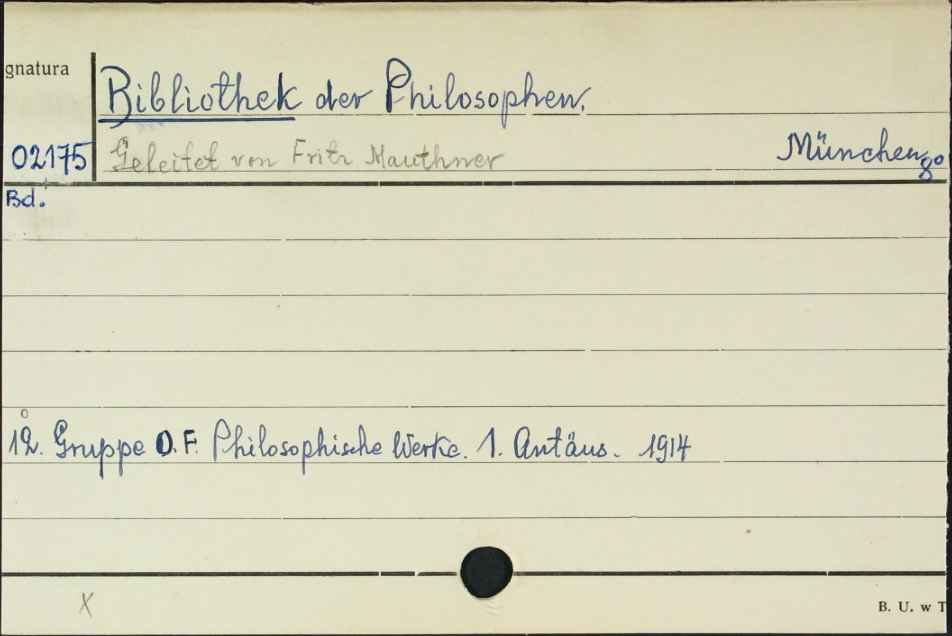 gnatura
Bibliothek der Philosophen.
02175 Geleitet von Fritz Mauthner München 8°
Bd.
12. Gruppe O. F. Philosophische Werke. 1. Antäus. 1914
X
B. U. w T